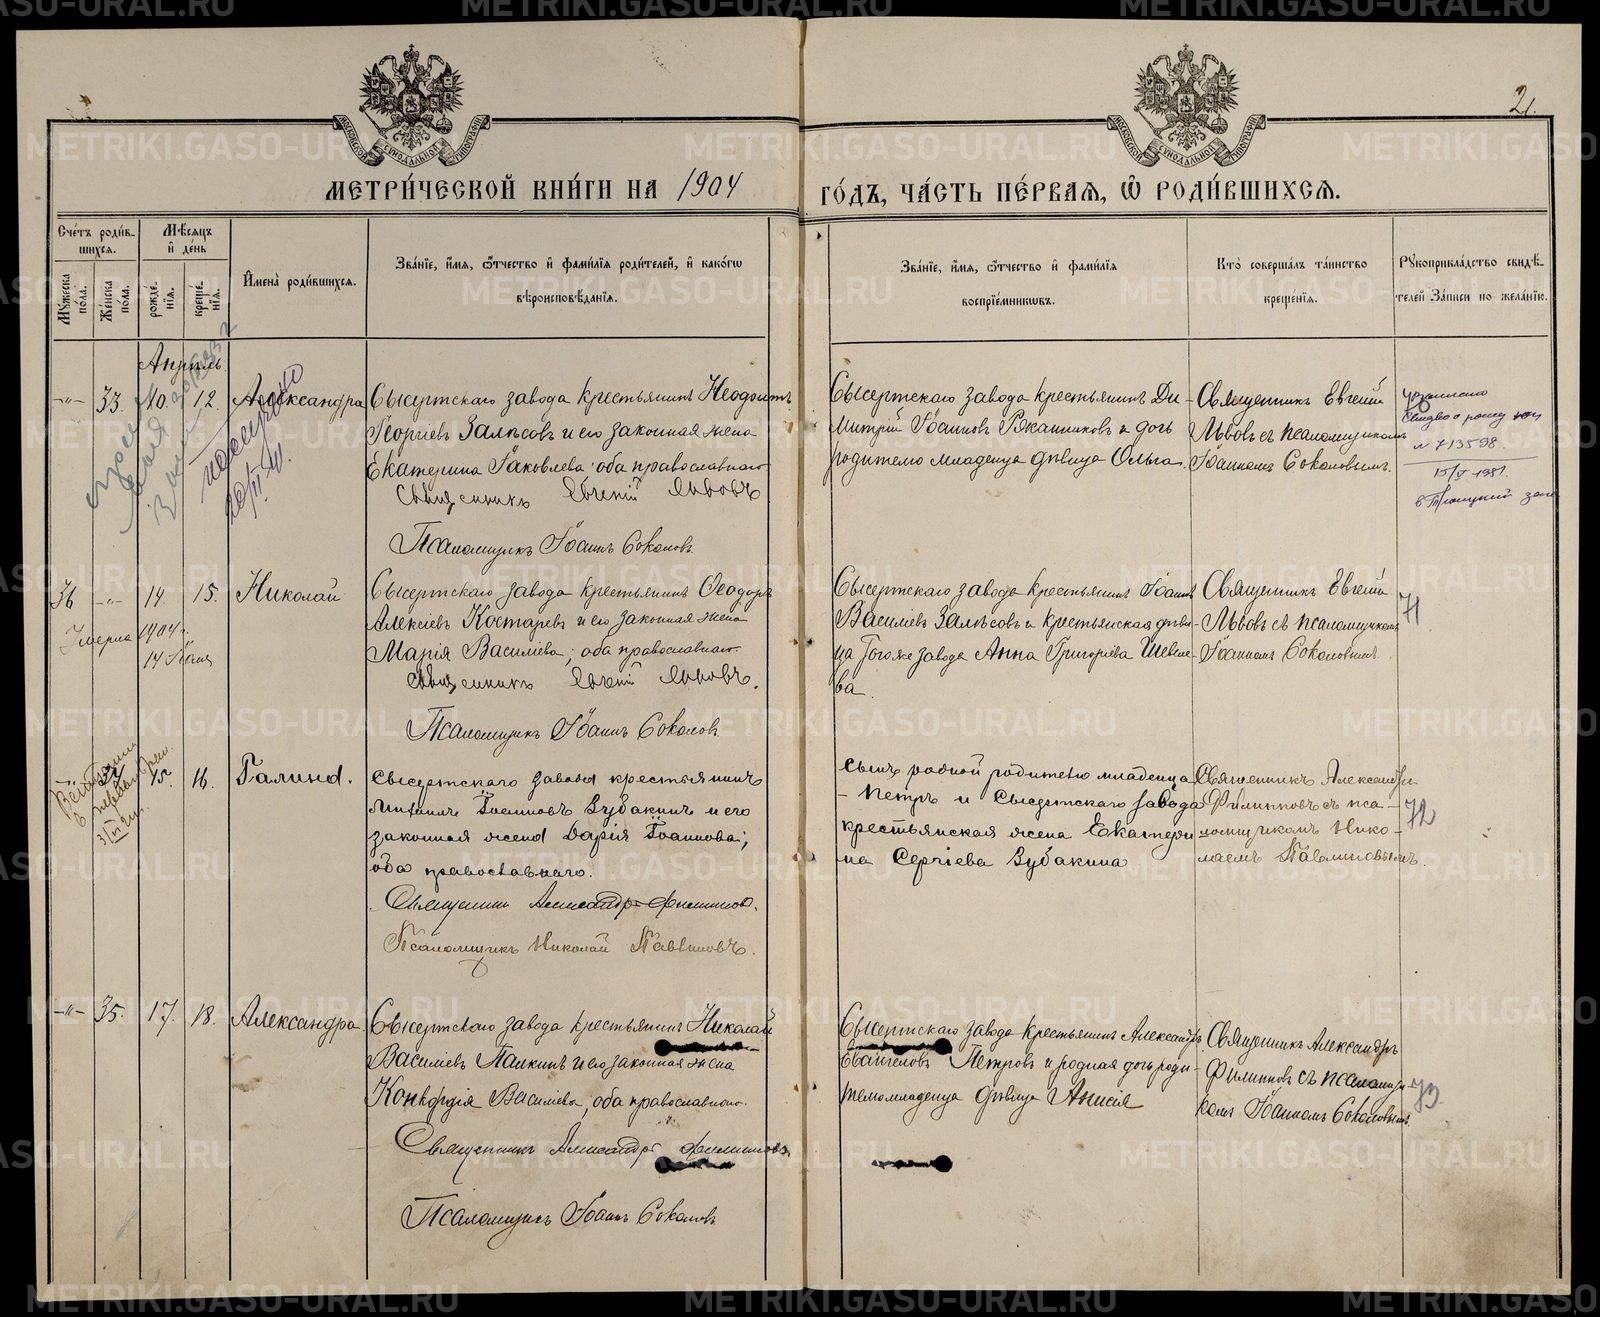 МЕТРИ́ЧЕСКОЙ КНИ́ГИ НА 1904 ГО́ДЪ, ЧА́СТЬ ПЕ́РВАЯ, Ѽ РОДИ́ВШИХСЯ.
2.
МОСКОВСКОЙ СУНОДАЛЬНОЙ ТИПОГРАФІИ
МОСКОВСКОЙ СУНОДАЛЬНОЙ ТИПОГРАФІИ
Сче́тъ роди́в-
шихся.
Мѣ́сяцъ
и҆ де́нь
Мꙋ́жеска по́ла.
Же́нска по́ла.
рожде́-
нїѧ.
креще́-
нїѧ.
И҆мена̀ роди́вшихся.
Зва́нїе, и҆́мѧ, ѻ҆́тчество и҆ фами́лїѧ роди́телей, и҆ како́гѡ
вѣроисповѣ́данїѧ.
Зва́нїе, и҆́мѧ, ѻ҆́тчество и҆ фами́лїѧ
воспрїе́мникѡвъ.
Кто̀ соверша́лъ та́инство
креще́нїѧ.
Рꙋкоприкла́дство свидѣ́-
телей За́писи по жела́нїю.
Апрѣль
-"- 33. 10. 12. Александра
Сысертскаго завода крестьянинъ Ѳеодотъ
Георгіевъ Залѣсовъ и его законная жена
Екатерина Іаковлева оба православнаго
Священникъ Евгеній Львовъ
Псаломщикъ Іоаннъ Соколовъ
Сысертскаго завода крестьянинъ Ди-
митрій Іоанновъ и дочь
родителю младенца дѣвица Ольга.
Священникъ Евгеній
Львовъ съ псаломщикомъ
Іоанномъ Соколовымъ.
№ 713598.
15/V 1951.
36 -"- 14. 15. Николай
Умерла 1904 г.
14 Іюля
Сысертскаго завода крестьянинъ Ѳеодоръ
Алексіевъ Костаревъ и его законная жена
Марія Василіева; оба православнаго
Священникъ Евгеній Львовъ.
Псаломщикъ Іоаннъ Соколовъ
Сысертскаго завода крестьянинъ Іоаннъ
Василіевъ Залѣсовъ и крестьянская дѣви-
ца того же завода Анна Григоріева Шевеле-
ва.
Священникъ Евгеній
Львовъ съ псаломщикомъ
Іоанномъ Соколовымъ
71
-"- 34 15. 16. Галина.
Сысертскаго завода крестьянинъ
Іоанновъ Зубакинъ и его
законная жена Дарія Іоаннова;
оба православнаго.
Священникъ Александръ Филипповъ.
Псаломщикъ Николай Павлиновъ.
Сынъ родной родителю младенца
- Петръ и Сысертскаго завода
крестьянская жена Екатери
на Сергіева Зубакина
Священникъ Александръ
Филипповъ съ пса-
ломщикомъ Нико-
лаемъ Павлиновымъ.
72
-"- 35. 17. 18. Александра
Сысертскаго завода крестьянинъ Николай
Василіевъ Палкинъ и его законная жена
Конкордія Василіева, оба православнаго.
Священникъ Александръ Филипповъ
Псаломщикъ Іоаннъ Соколовъ
Сысертскаго завода крестьянинъ Александръ
Евангеловъ Петровъ и родная дочь роди-
телю младенца дѣвица Анисія
Священникъ Александръ
Филипповъ съ псаломщи-
комъ Іоанномъ Соколовымъ.
73
METRIKI.GASO-URAL.RU